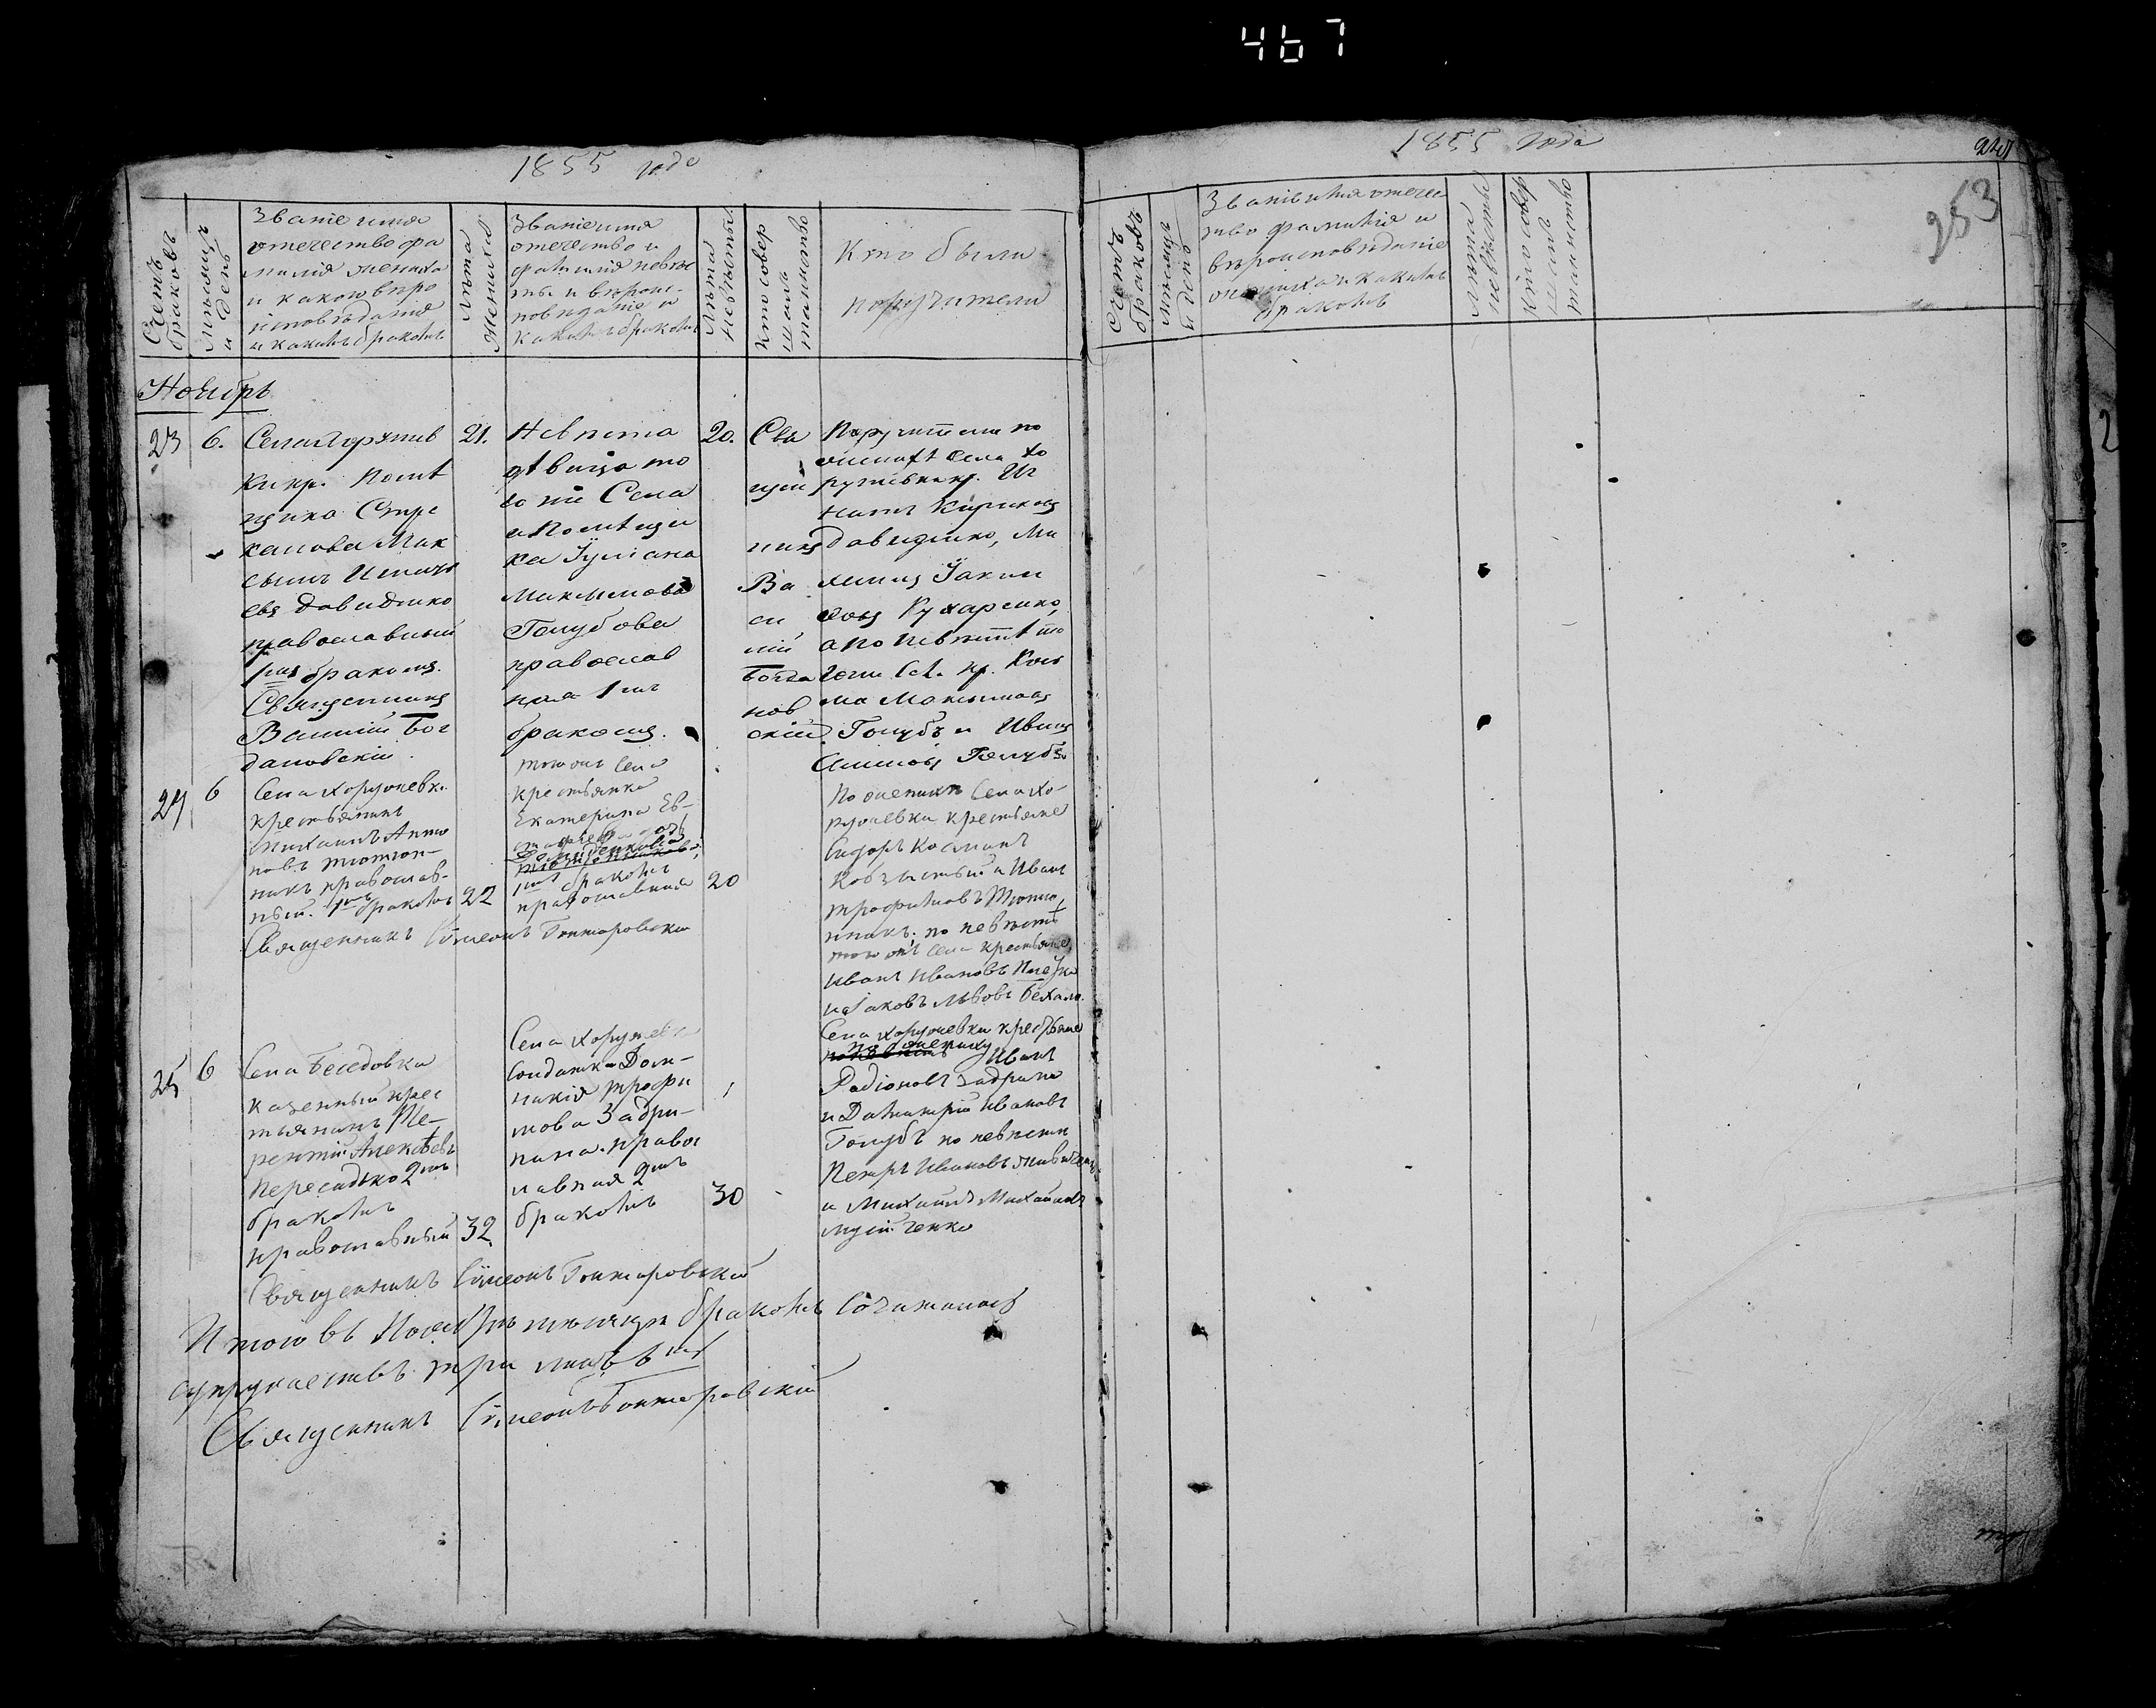 467
1855 года
Счетъ браковъ
Мѣсяцъ и день
Званіе имя
отечество фа
милія жениха
и какого вѣро
исповѣданія
и какимъ бракомъ
Лѣта Жениха
Званіе имя
отечество и
фамилія невѣс
ты и вѣроис-
повѣданіе и
какимъ бракомъ
Лѣта Невѣсты
Кто совер
шалъ
таинство
Кто были
поручители
Ноябрь
23
6.
Села
ки кр. Помѣ
щика Стре
калова Мак
симъ Игнать
евъ Давиденко
православный
1мъ бракомъ.
Священникъ
Василій Бог
дановскій.
21.
Невѣста
дѣвица то
го же Села
и Помѣщи
ка Іуліана
Максимова
Голубова
православ
ная 1мъ
бракомъ.
20.
Свя
щен
никъ
Ва
си
лій
Богда
нов
скій
Поручители по
женихѣ Села Хо
ружевки кр. Иг
натъ Кириловъ
Давиденко, Ми
хаилъ Іаким
овъ Кухаренко,
а по невѣстѣ то
гоже Сел. кр. Козь
ма Максимовъ
Голубъ и Иванъ
Голубъ
24
6
Села Хоружевки
крестьянинъ
Михаилъ Анто
новъ Тютюн-
никъ православ-
ный. 1мъ бракомъ
22
того жъ Села
крестьянка
Екатерина Ев-
стафіева дочь
1мъ бракомъ
православная
20
Священникъ Сѵмеонъ Гонтаровскій
По женихѣ Села Хо-
ружевки крестьяне
Сидоръ Косминъ
Кобзыстый и Иванъ
Трофимовъ Тютюн
никъ. по невѣстѣ
того жъ Села крестьяне
Иванъ Ивановъ
и Яковъ Львовъ
25
6
Села Беседовки
казенный крес
тьянинъ Те-
рентій Алексѣевъ
Пересадько 2мъ
бракомъ
православный
32
Села Хоружевки
Солдатка Дом-
никія Трофи
мова Задри-
пана. правос
лавная 2мъ
бракомъ
30
Села Хоружевки крестьяне
по жениху Иванъ
Радіоновъ Задрипа
и Димитрій Ивановъ
Голубъ по невѣсти
Петръ Ивановъ
и Михаилъ Михайловъ
Мусійченко
Священникъ Сѵмеонъ Гонтаровскій
Итого въ Ноябрѣ мѣсяцѣ бракомъ Сочиталось
супружествъ. три
Священникъ Сѵмеонъ Гонтаровскій
1855 года
253
Счетъ браковъ
Мѣсяцъ и день
Званіе имя отечес-
тво фамилія и
вѣроисповѣданіе
жениха и какимъ
бракомъ
Лѣта невѣсты
Кто совер
шалъ
таинство